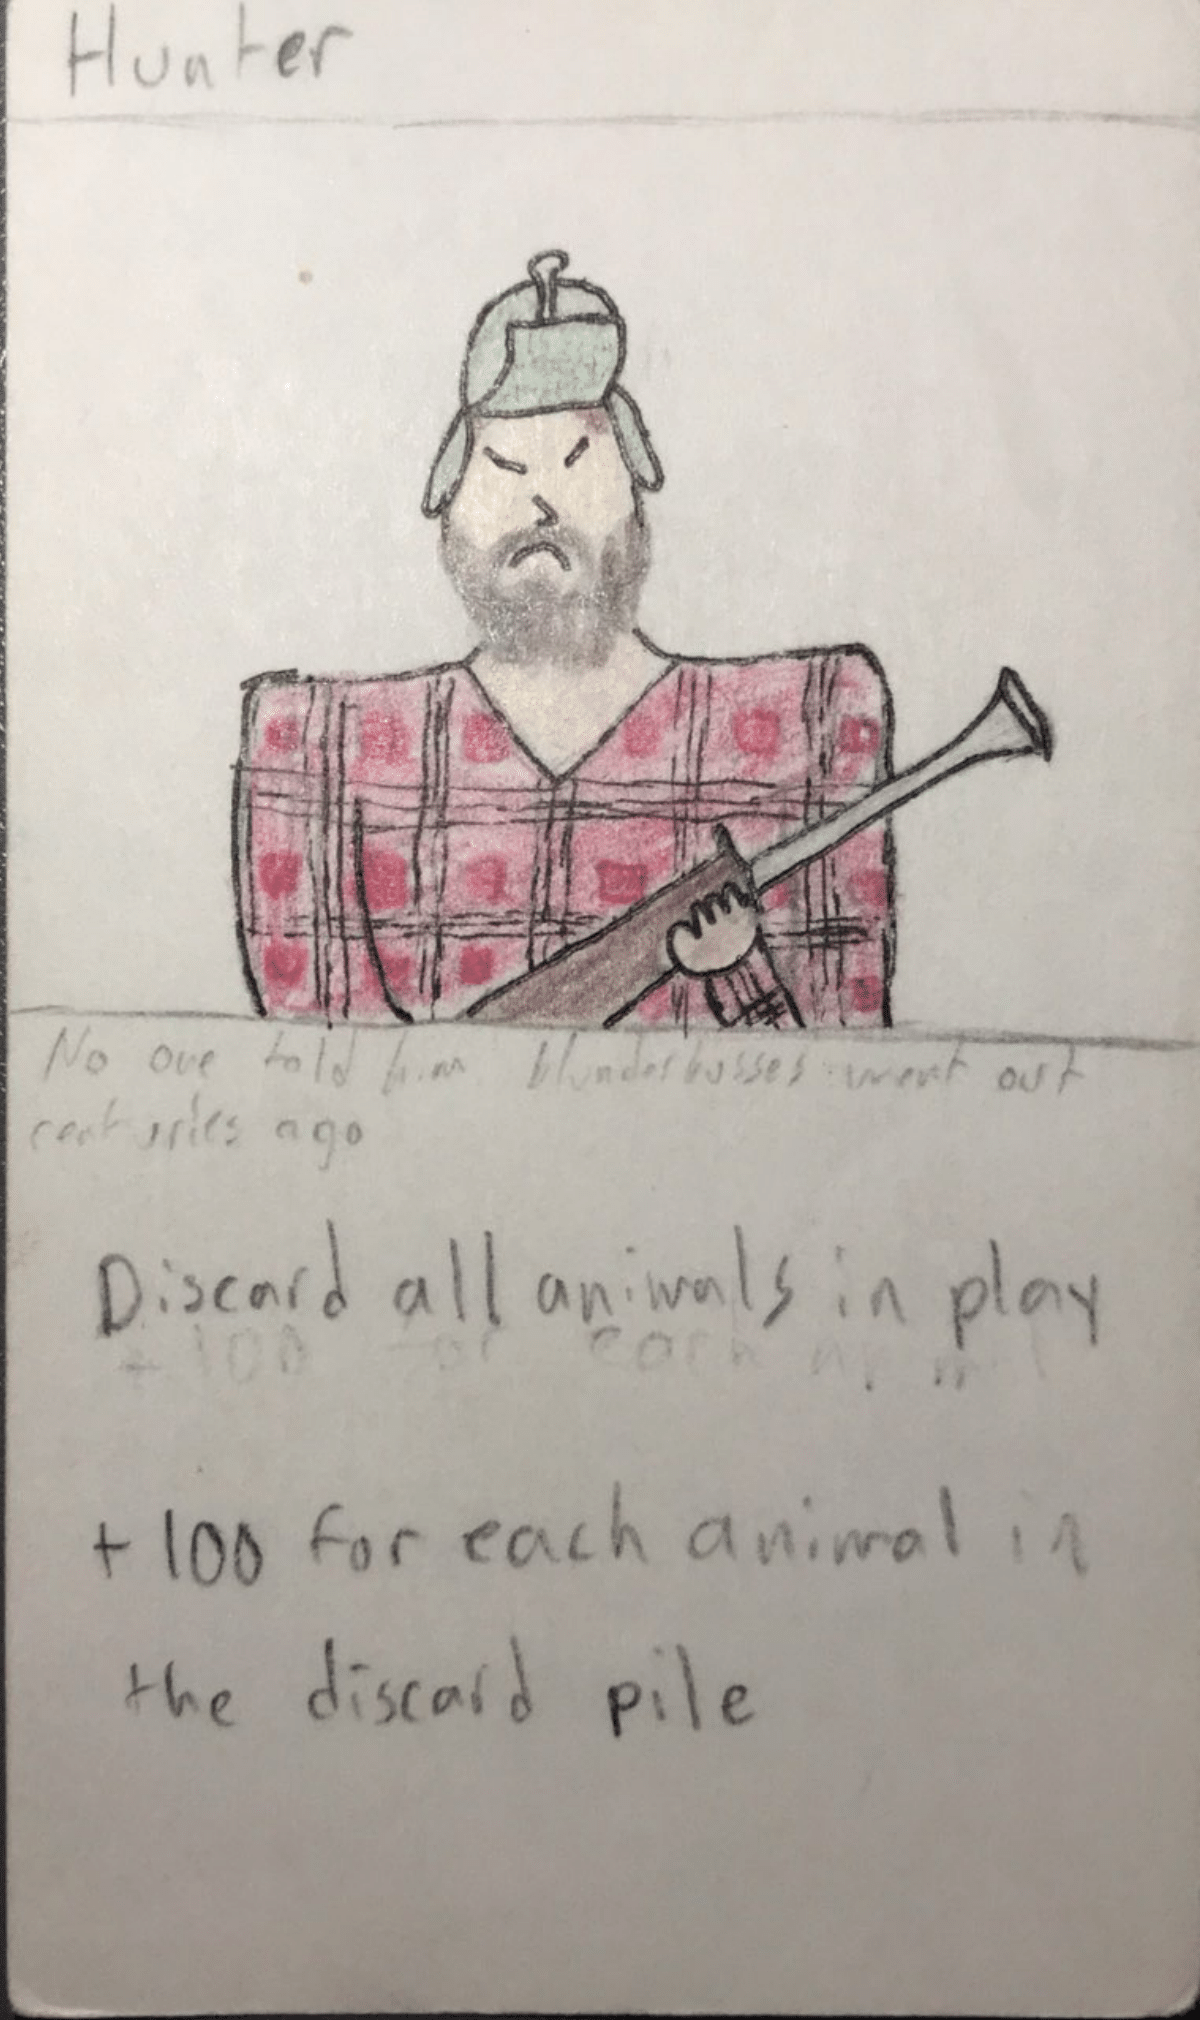 Hunter
No one told him blunderbusses went out
centuries ago
Discard all animals in play
+100 for each animal
+100 for each animal in
the discard pile